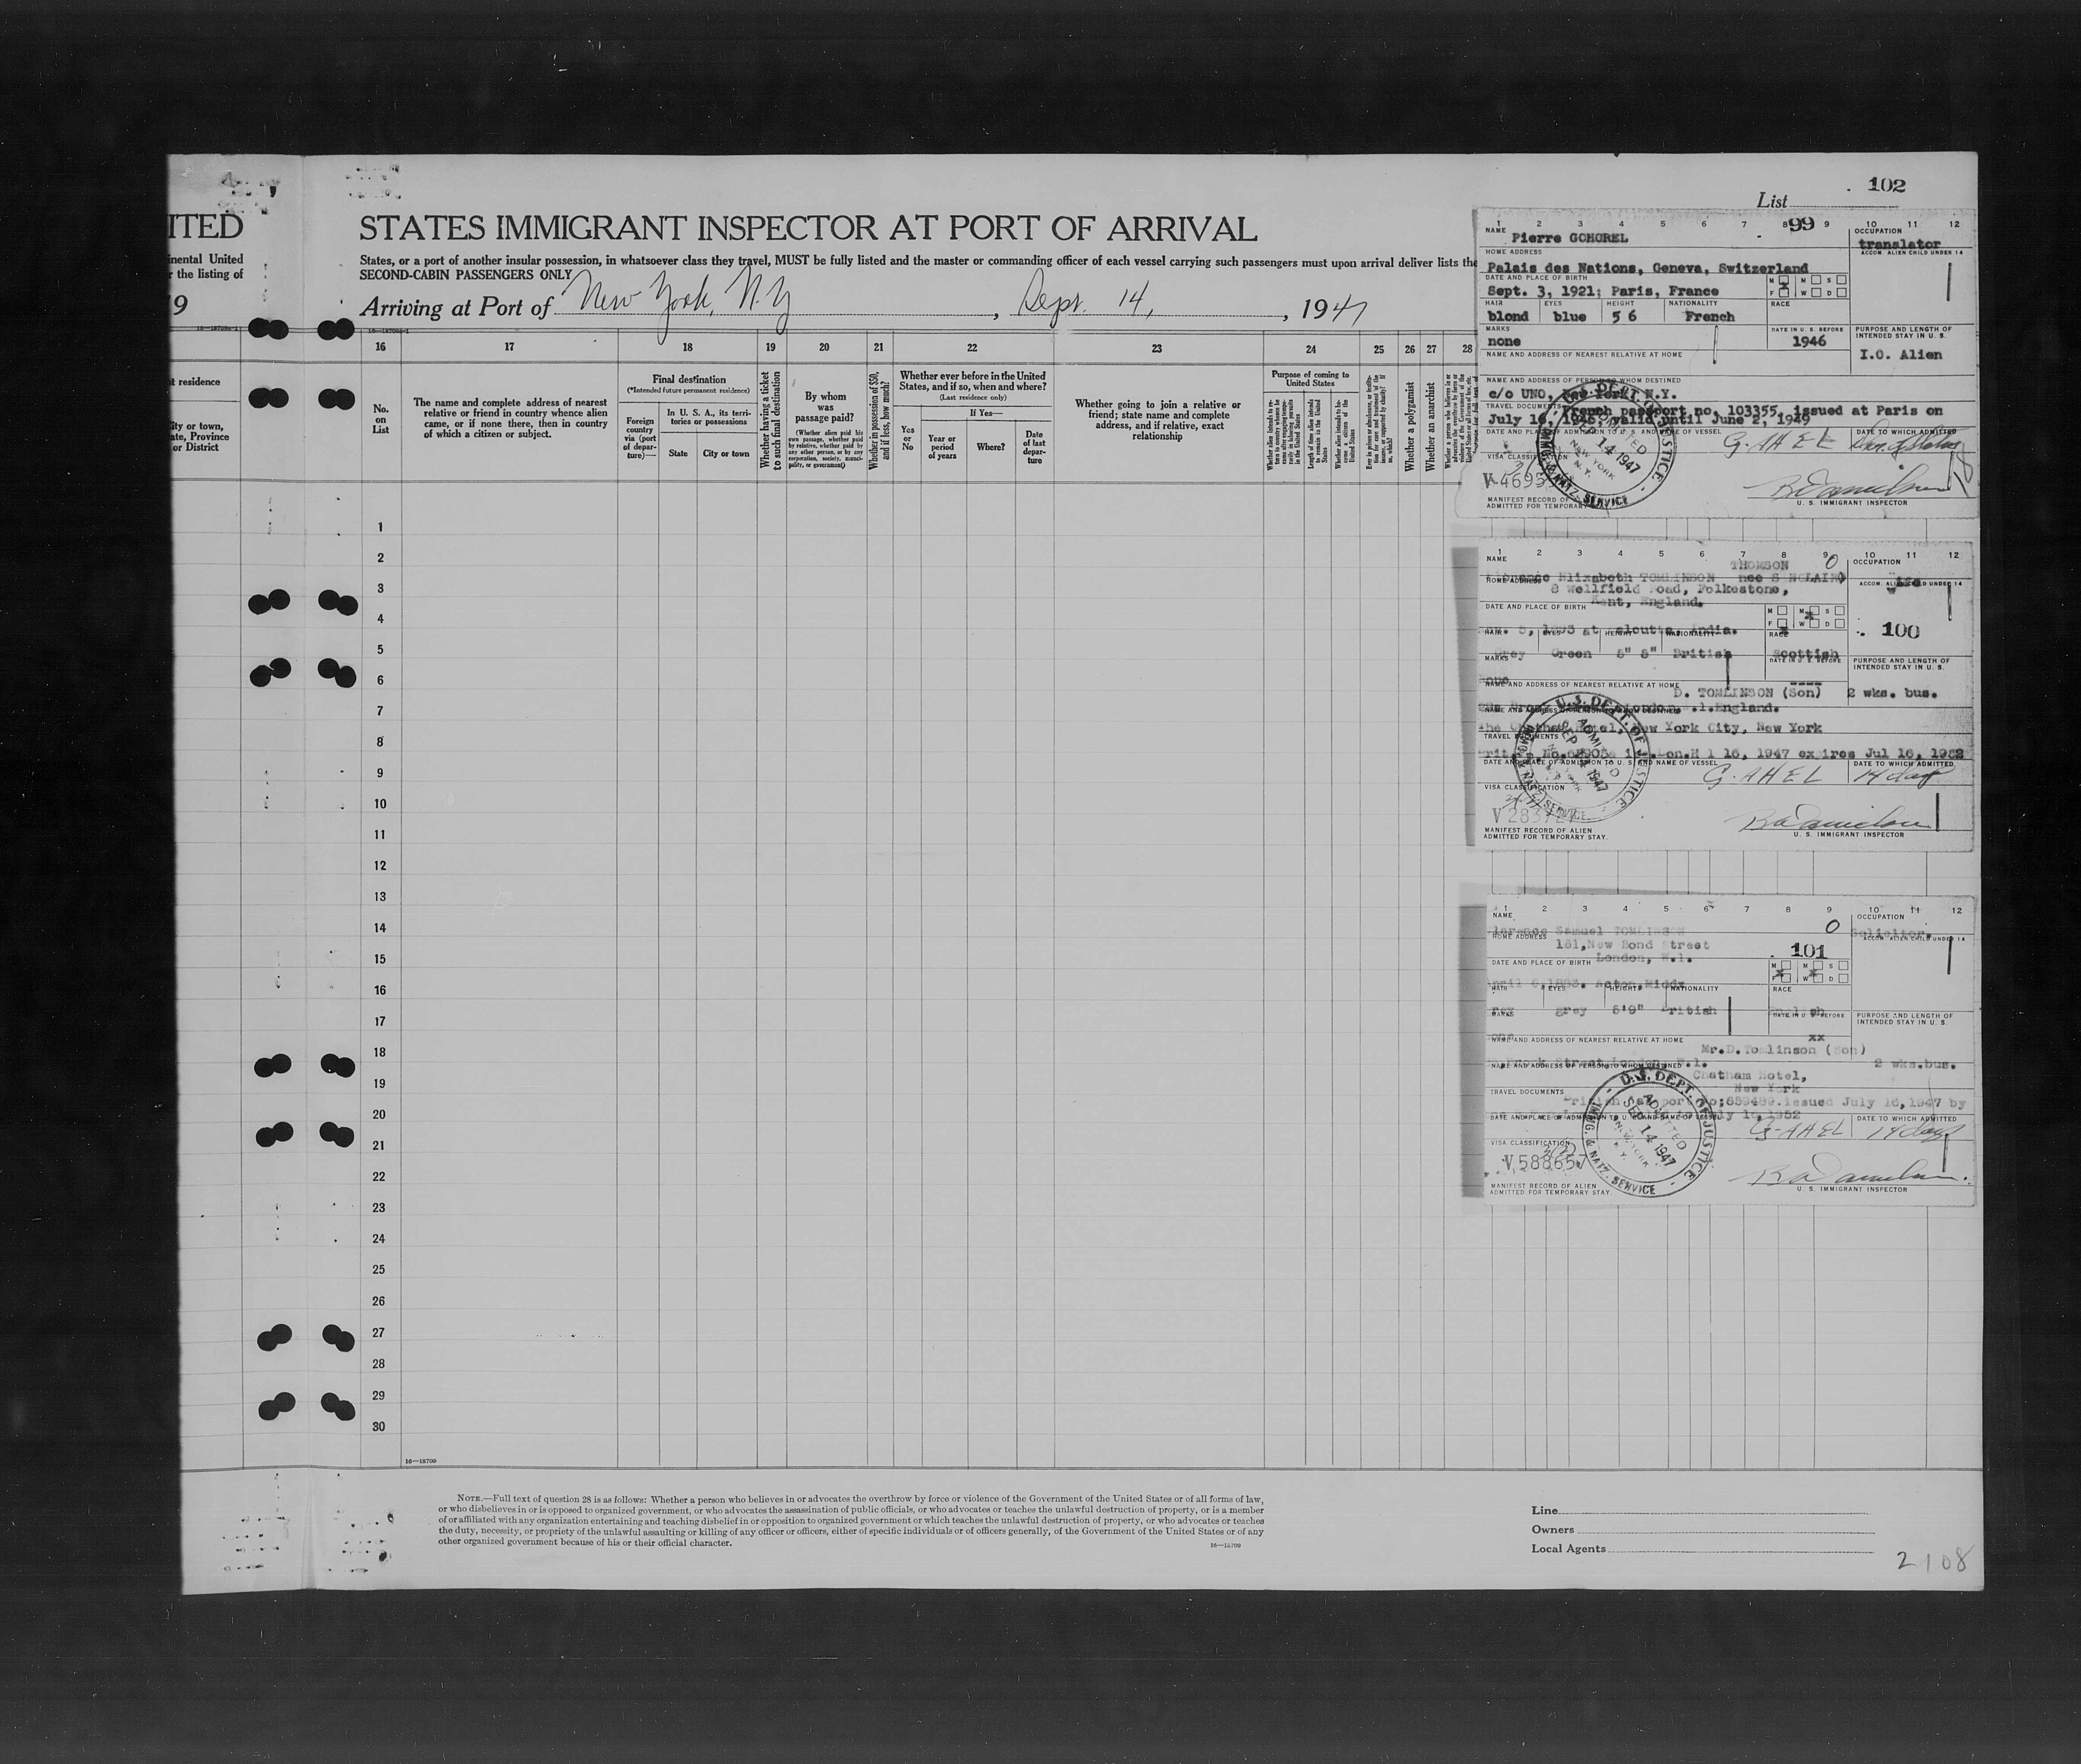 102
List
ITED
STATES IMMIGRANT INSPECTOR AT PORT OF ARRIVAL
inental United
r the listing of
9
States, or a port of another insular possession, in whatsoever class they travel, MUST be fully listed and the master or commanding officer of each vessel carrying such passengers must upon arrival deliver lists the
SECOND-CABIN PASSENGERS ONLY
Arriving at Port of New York, N.Y , Sept. 14, , 1947
16 17 18 19 20 21 22 23 24 25 26 27 28
t residence
ity or town,
ate, Province
or District
No. on List
The name and complete address of nearest
relative or friend in country whence alien
came, or if none there, then in country
of which a citizen or subject.
Final destination
(*Intended future permanent residence)
Foreign country via (port of depar- ture)—
In U. S. A., its terri- tories or possessions
State
City or town
Whether having a ticket to such final destination
By whom was passage paid?
(Whether alien paid his own passage, whether paid by relative, whether paid by any other person, or by any corporation, society, munici- pality, or government)
Whether in possession of $50, and if less, how much?
Whether ever before in the United States, and if so, when and where?
(Last residence only)
Yes or No
If Yes—
Year or period of years
Where?
Date of last depar- ture
Whether going to join a relative or
friend; state name and complete
address, and if relative, exact
relationship
Purpose of coming to United States
Whether a polygamist
Whether an anarchist
1
2
3
4
5
6
7
8
9
10
11
12
13
14
15
16
17
18
19
20
21
22
23
24
25
26
27
28
29
30
16—18709
NOTE.—Full text of question 28 is as follows: Whether a person who believes in or advocates the overthrow by force or violence of the Government of the United States or of all forms of law,
or who disbelieves in or is opposed to organized government, or who advocates the assassination of public officials, or who advocates or teaches the unlawful destruction of property, or is a member
of or affiliated with any organization entertaining and teaching disbelief in or opposition to organized government or which teaches the unlawful destruction of property, or who advocates or teaches
the duty, necessity, or propriety of the unlawful assaulting or killing of any officer or officers, either of specific individuals or of officers generally, of the Government of the United States or of any
other organized government because of his or their official character.
16—18709
Line
Owners
Local Agents
2108
1 2 3 4 5 6 7 8 99 9 10 11 12
NAME Pierre GOHOREL
OCCUPATION translator
HOME ADDRESS
ACCOM. ALIEN CHILD UNDER 14
Palais des Nations, Geneva, Switzerland
DATE AND PLACE OF BIRTH
Sept. 3, 1921; Paris, France
M M S
F W D
HAIR EYES HEIGHT NATIONALITY RACE
blond blue 5 6 French
MARKS none
DATE IN U. S. BEFORE 1946
PURPOSE AND LENGTH OF INTENDED STAY IN U. S.
I.O. Alien
NAME AND ADDRESS OF NEAREST RELATIVE AT HOME
NAME AND ADDRESS OF PERSON TO WHOM DESTINED
c/o UNO, New York N.Y.
TRAVEL DOCUMENTS French passport no. 103355, issued at Paris on
July 16, 1946; valid until June 2, 1949
DATE AND PLACE OF ADMISSION TO U. S. AND NAME OF VESSEL
DATE TO WHICH ADMITTED
G-AHEL Dur. of Status
VISA CLASSIFICATION
MANIFEST RECORD OF
ADMITTED FOR TEMPORARY
U. S. IMMIGRANT INSPECTOR
U. S. DEPT. OF JUSTICE
ADMITTED
14 1947
NEW YORK N. Y.
IMMIG. & NATZ. SERVICE
1 2 3 4 5 6 7 8 9 10 11 12
NAME
THOMSON
0
OCCUPATION
HOME ADDRESS
Elizabeth TOMLINSON nee
ACCOM. ALIEN CHILD UNDER 14
8 Wellfield Road, Folkestone,
DATE AND PLACE OF BIRTH Kent, England.
M M S
F W D
100
HAIR EYES HEIGHT NATIONALITY RACE
Grey Green 5" 5" British Scottish
MARKS
DATE IN U. S. BEFORE
PURPOSE AND LENGTH OF INTENDED STAY IN U. S.
NAME AND ADDRESS OF NEAREST RELATIVE AT HOME
D. TOMLINSON (Son) 2 wks. bus.
London England.
The Chatham Hotel, New York City, New York
TRAVEL DOCUMENTS
16, 1947 expires Jul 16, 1952
DATE AND PLACE OF ADMISSION TO U. S. AND NAME OF VESSEL
DATE TO WHICH ADMITTED
G-AHEL 14 days
VISA CLASSIFICATION
MANIFEST RECORD OF ALIEN
ADMITTED FOR TEMPORARY STAY.
U. S. IMMIGRANT INSPECTOR
U. S. DEPT. OF JUSTICE
ADMITTED
SEP 14 1947
SERVICE
1 2 3 4 5 6 7 8 9 10 11 12
NAME
0
OCCUPATION
Samuel TOMLINSON
Solicitor.
HOME ADDRESS
ACCOM. ALIEN CHILD UNDER 14
181, New Bond Street
101
DATE AND PLACE OF BIRTH London, W.1.
M M S
F W D
April 6, 1883. Acton, Middx
HAIR EYES HEIGHT NATIONALITY RACE
grey 5'9" British English
MARKS
DATE IN U. S. BEFORE
xx
PURPOSE AND LENGTH OF INTENDED STAY IN U. S.
NAME AND ADDRESS OF NEAREST RELATIVE AT HOME
Mr.D.Tomlinson (Son)
Brook Street, London, W.1. 2 wks.bus.
NAME AND ADDRESS OF PERSON TO WHOM DESTINED
Chatham Hotel,
New York
TRAVEL DOCUMENTS
British Passport No;659489.issued July 16,1947 by
July 16, 1952
DATE AND PLACE OF ADMISSION TO U. S. AND NAME OF VESSEL
DATE TO WHICH ADMITTED
G-AHEL 14 days
VISA CLASSIFICATION
V 588657
MANIFEST RECORD OF ALIEN
ADMITTED FOR TEMPORARY STAY
U. S. IMMIGRANT INSPECTOR
U. S. DEPT. OF JUSTICE
ADMITTED
SEP 14 1947
NEW YORK N. Y.
IMMIG. & NATZ. SERVICE